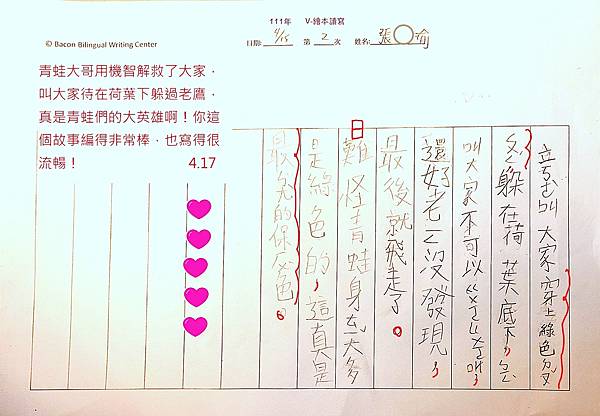 111年 V-繪本讀寫
© Bacon Bilingual Writing Center
日期: 4/15 第 2 次 姓名: 張〇瑜
青蛙大哥用機智解救了大家，
叫大家待在荷葉下躲過老鷹，
真是青蛙們的大英雄啊！你這
個故事編得非常棒，也寫得很
流暢！ 4.17
叫大家穿上綠色
躲在荷葉底下，
叫大家不可以
還好老 沒發現，
最後就飛走了。
難怪青蛙身 大多
是綠色的，這真是
最 的保 色。